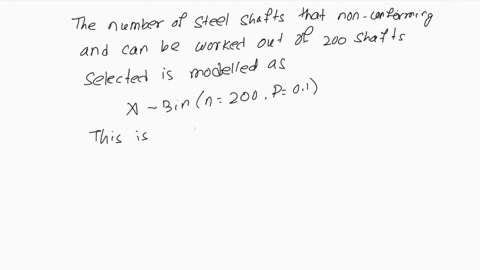 The number of steel shafts that non-conforming
and can be worked out of 200 shafts
selected is modelled as
X ~ Bin (n = 200, P = 0.1)
This is